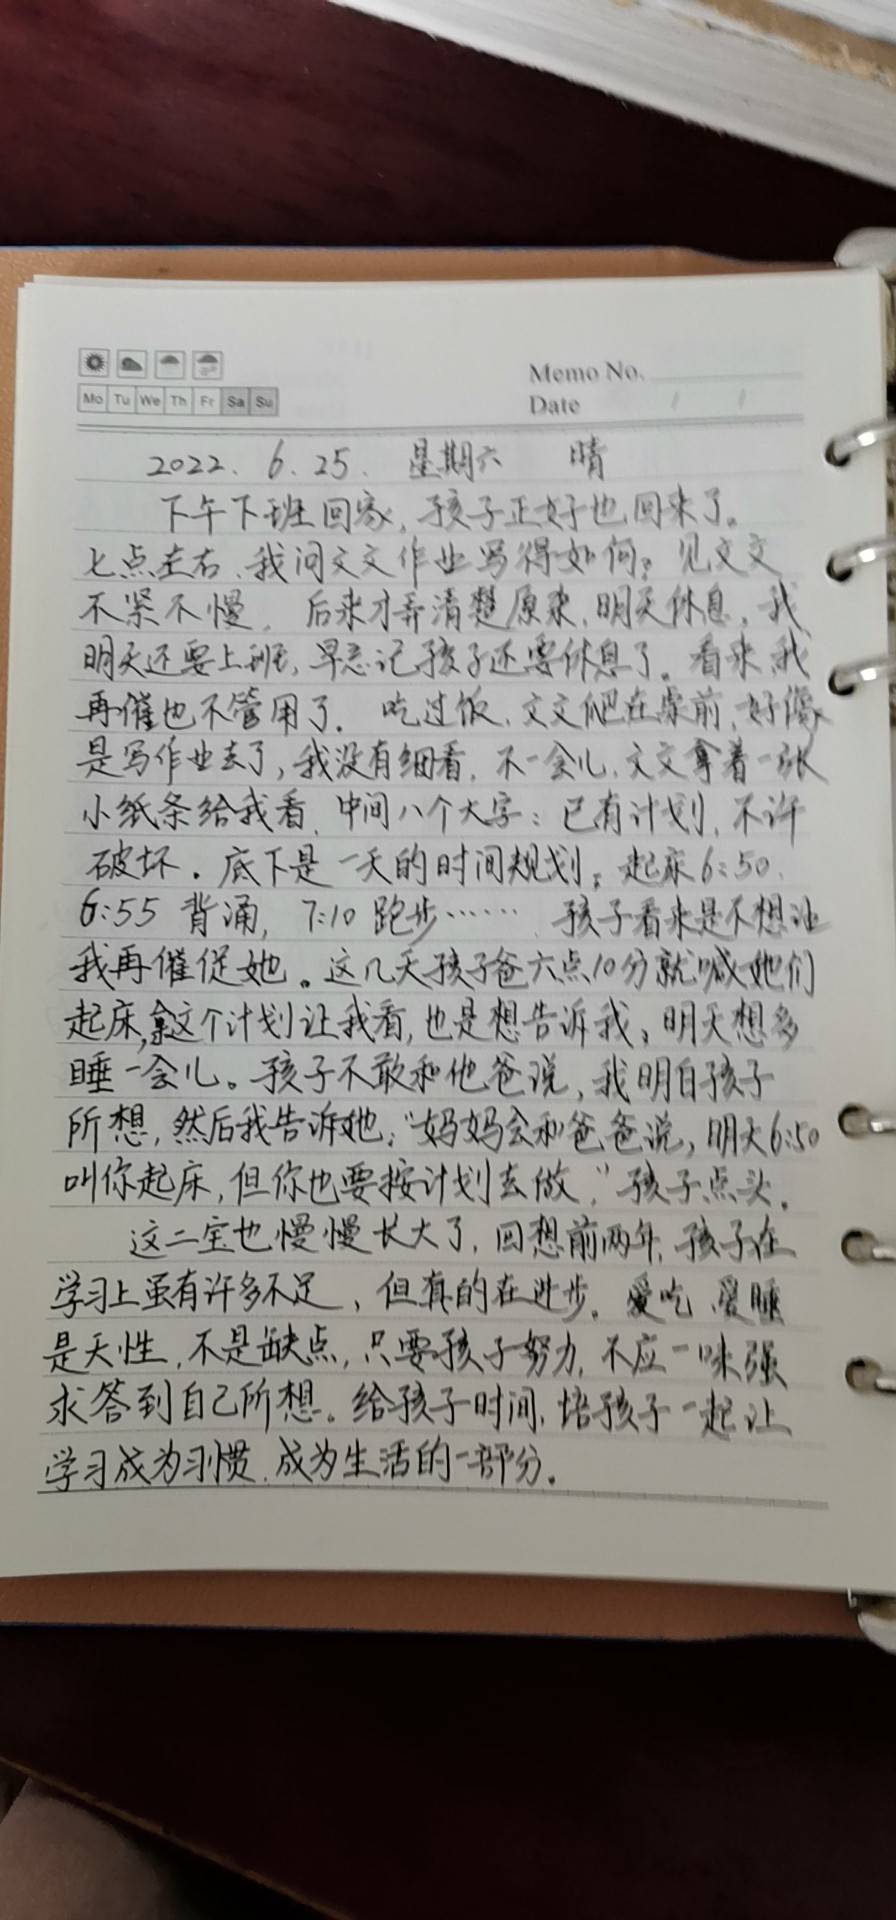 Memo No.
Mo Tu We Th Fr Sa Su
Date / /
2022. 6. 25. 星期六 晴
下午下班回家,孩子正好也回来了。
七点左右、我问文文作业写得如何?见文文
不紧不慢。后来才弄清楚原来,明天休息,我
明天还要上班,早忘记孩子还要休息了。看来,我
再催也不管用了。吃过饭,文文爬在桌前,好像
是写作业去了,我没有细看,不一会儿,文文拿着一张
小纸条给我看,中间八个大字:已有计划,不许
破坏。底下是一天的时间规划;起床6:50,
6:55 背诵,7:10 跑步……孩子看来是不想让
我再催促她。这几天孩子爸六点10分就喊她们
起床,拿这个计划让我看,也是想告诉我,明天想多
睡一会儿。孩子不敢和他爸说,我明白孩子
所想,然后我告诉她;“妈妈会和爸爸说,明天6:50
叫你起床,但你也要按计划去做,”孩子点头。
这二宝也慢慢长大了,回想前两年,孩子在
学习上虽有许多不足,但真的在进步。爱吃、爱睡
是天性,不是缺点,只要孩子努力,不应一味强
求答到自己所想。给孩子时间,培孩子一起让
学习成为习惯,成为生活的一部分。